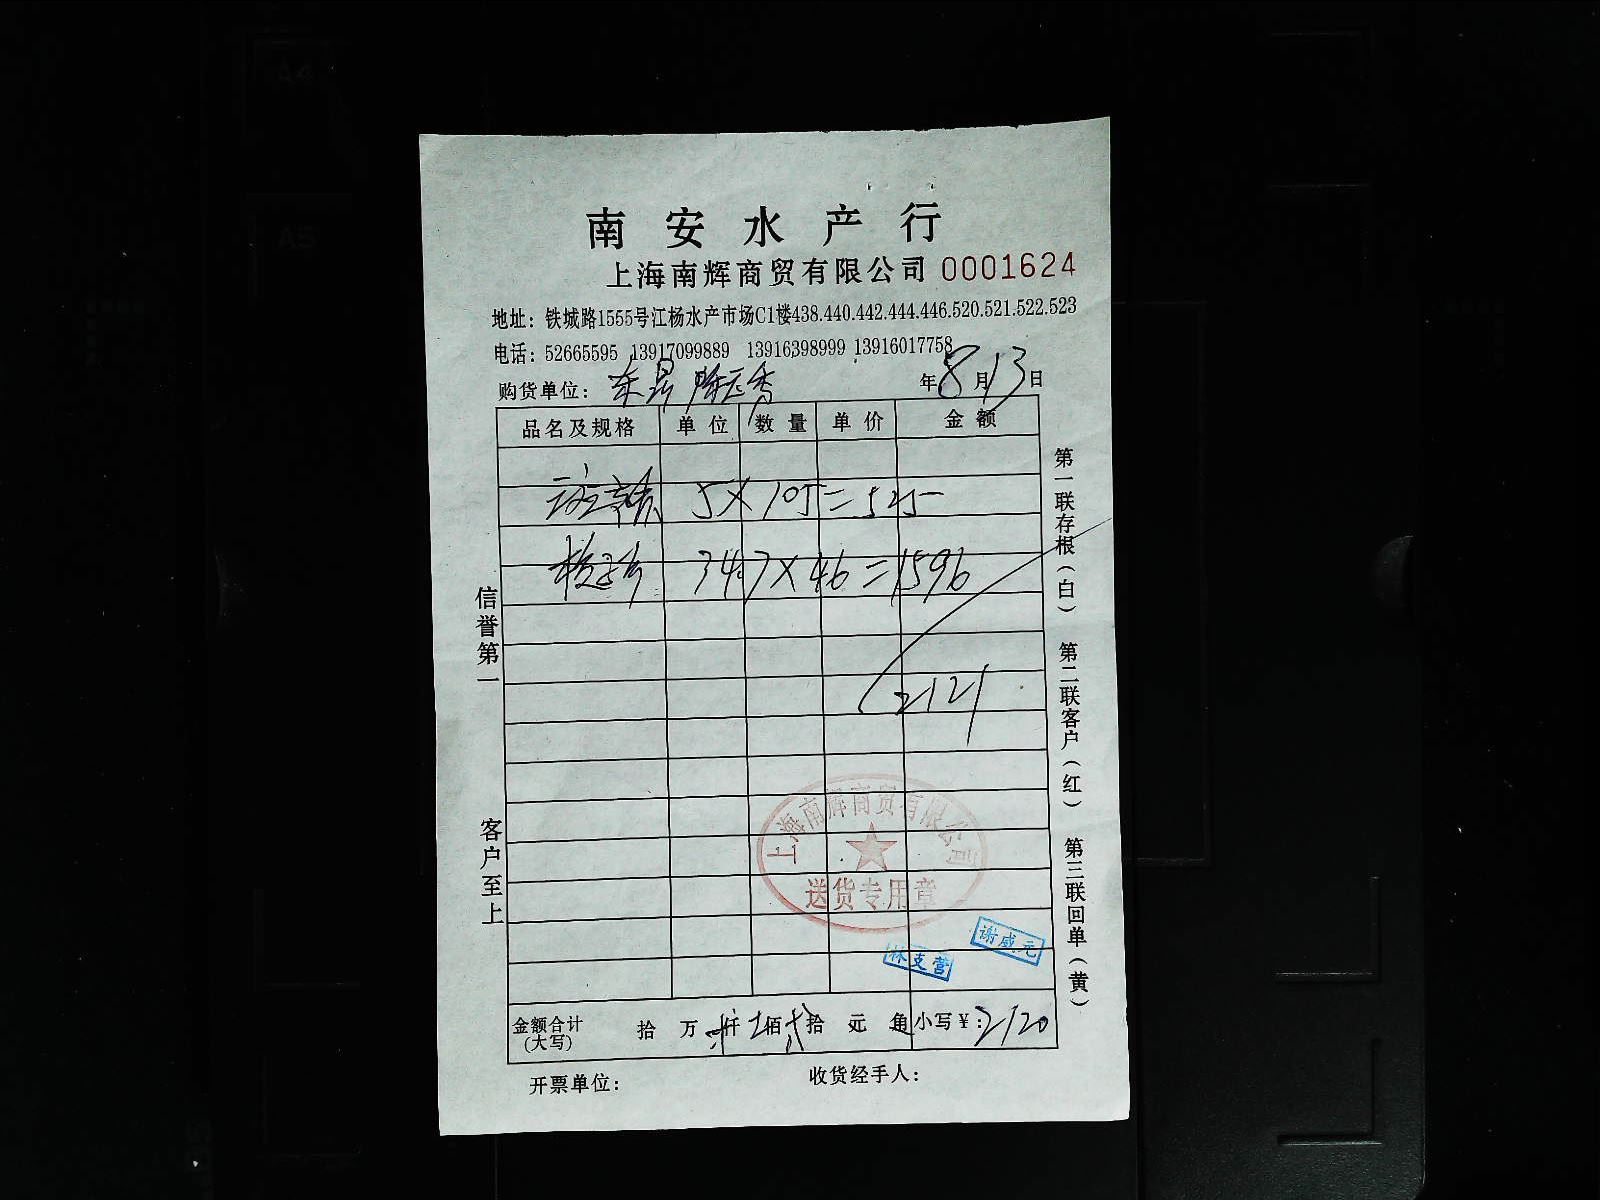 南安水产行
上海南辉商贸有限公司 0001624
地址：铁城路1555号江杨水产市场C1楼438.440.442.444.446.520.521.522.523
电话：52665595 13917099889 13916398999 13916017758
购货单位： 年8月13日
品名及规格 单位 数量 单价 金额
5×105=525-
34.7×46=1596
2121
上海南辉商贸有限公司
送货专用章
谢咸元
林支营
金额合计(大写) 拾 万 仟 佰 拾 元 角 小写￥：2120
开票单位： 收货经手人：
信誉第一
客户至上
第一联存根（白） 第二联客户（红） 第三联回单（黄）